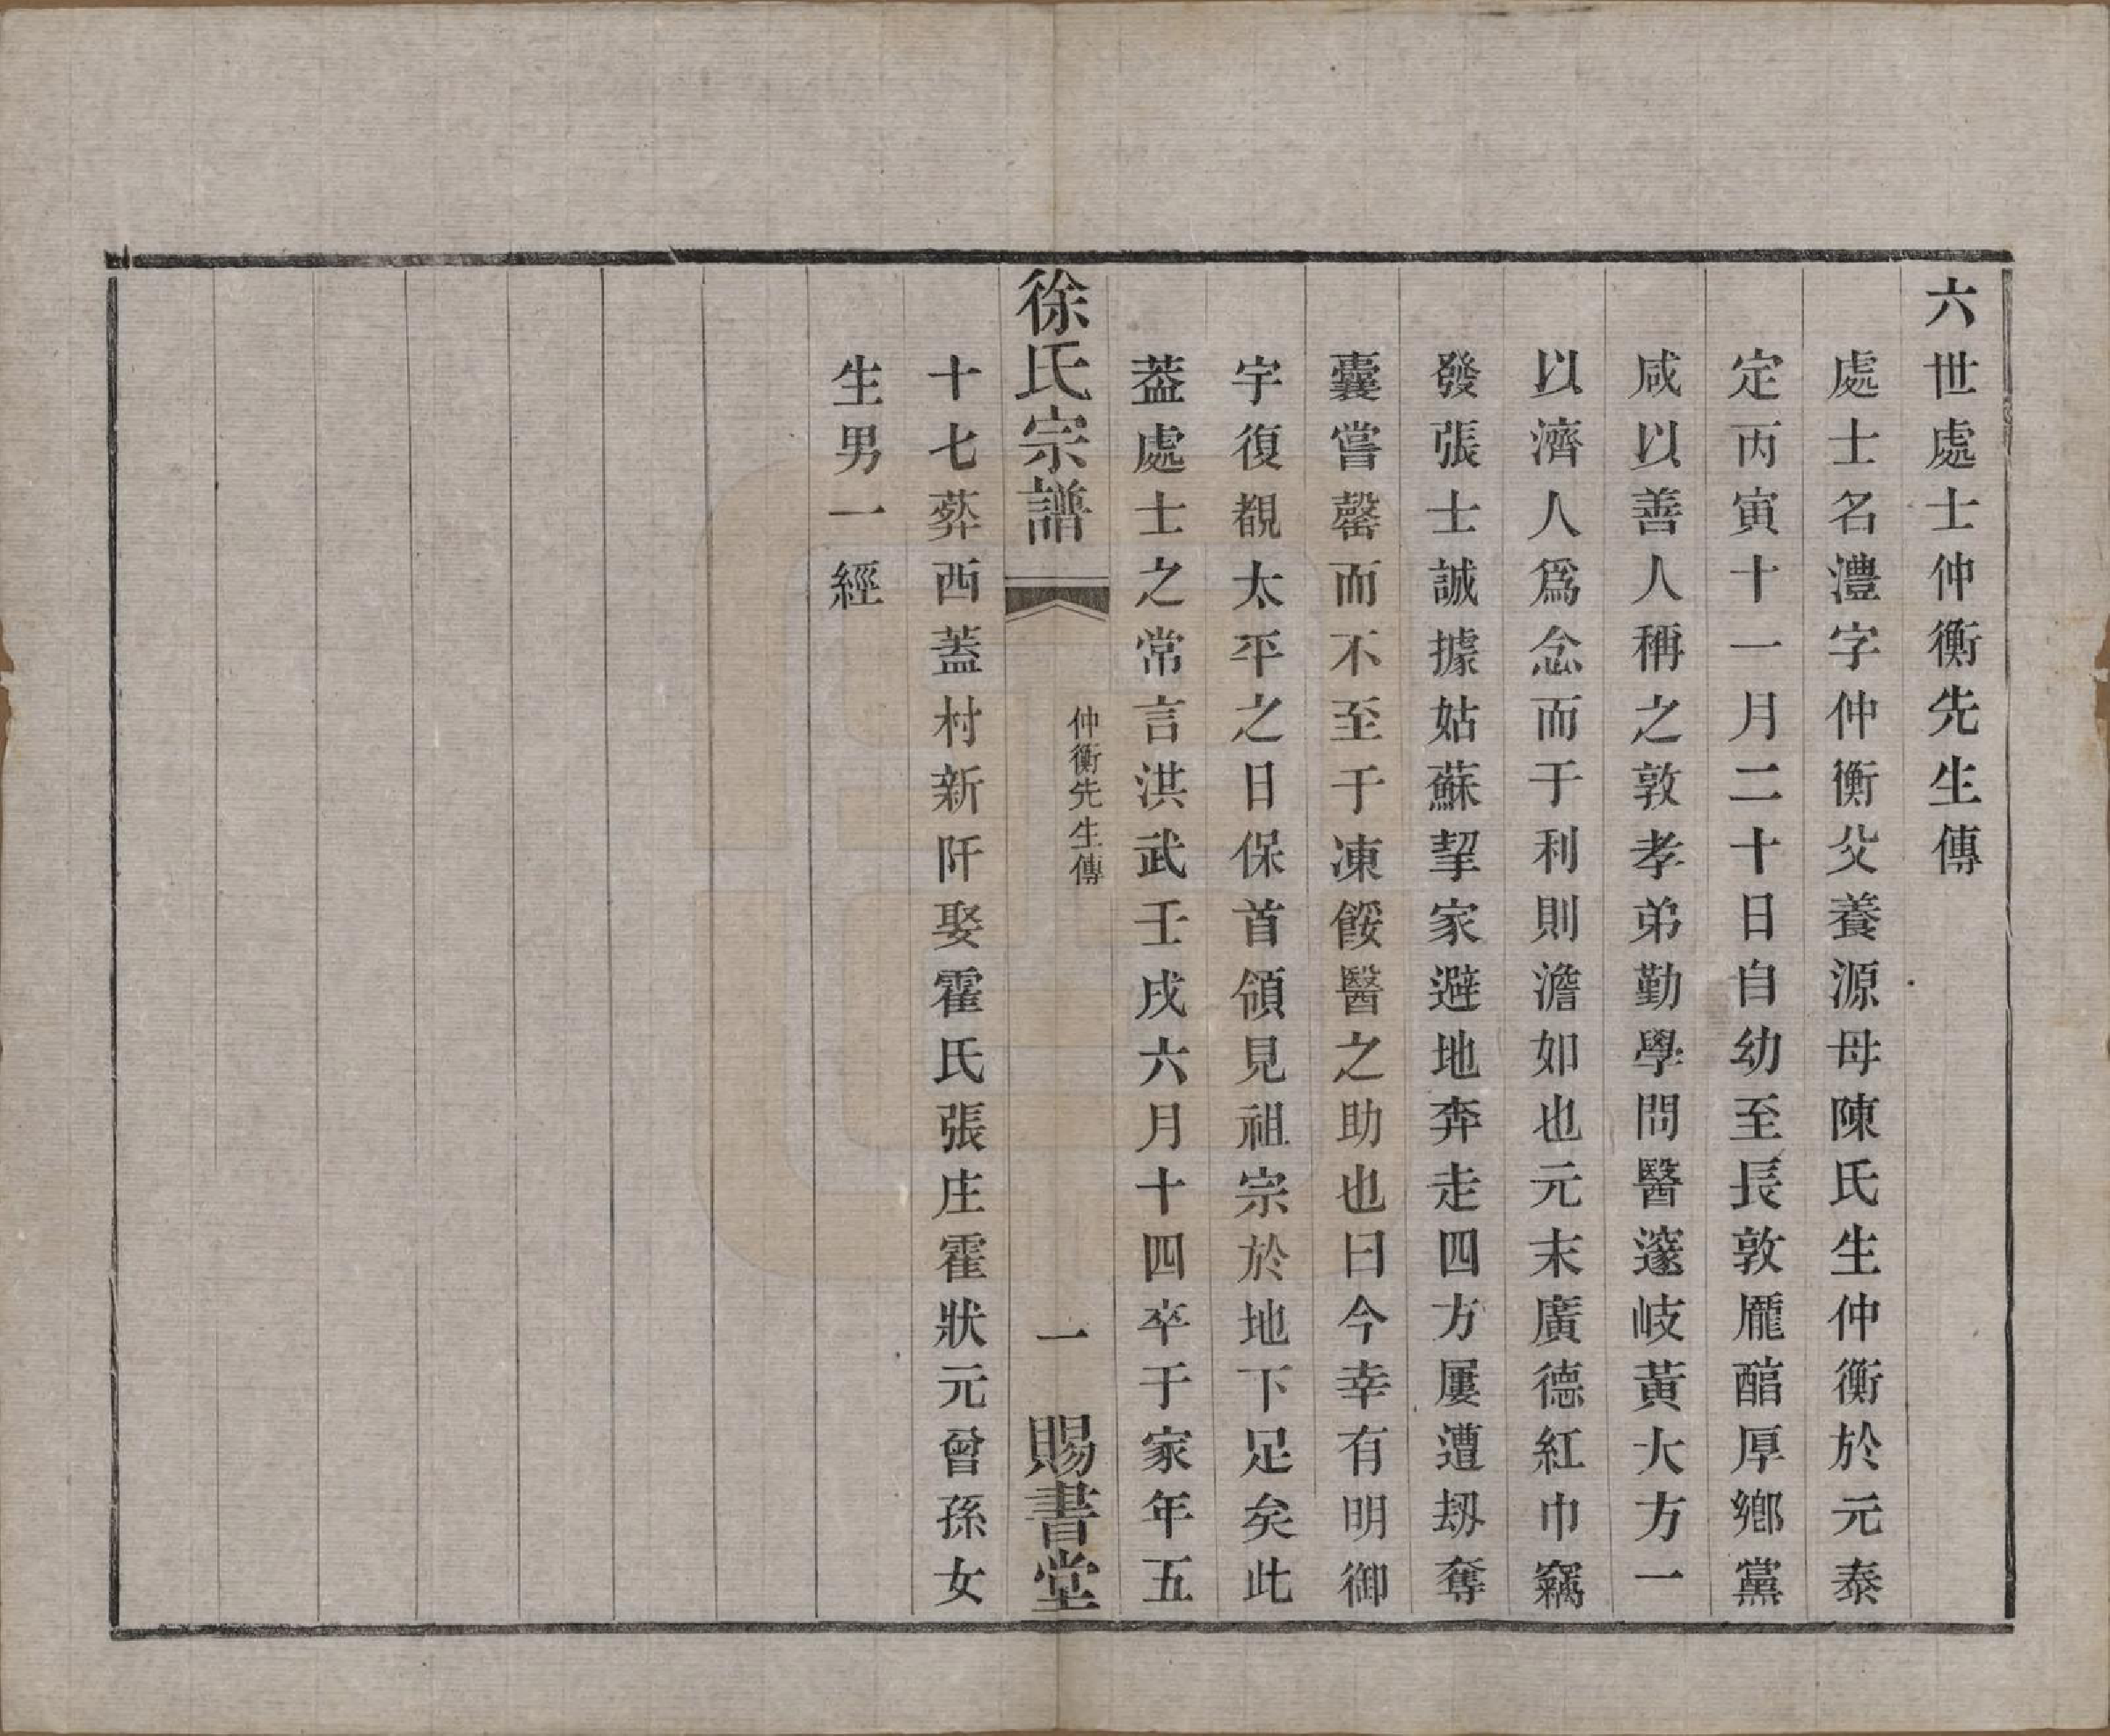 六世處士仲衡先生傳
處士名澧字仲衡父養源母陳氏生仲衡於元泰
定丙寅十一月二十日自幼至長敦龐醕厚鄉黨
咸以善人稱之敦孝弟勤學問醫邃岐黃大方一
以濟人爲念而于利則澹如也元末廣德紅巾竊
發張士誠據姑蘇挈家避地奔走四方屢遭刼奪
囊嘗罄而不至于凍餒醫之助也曰今幸有明御
宇復覩太平之日保首領見祖宗於地下足矣此
葢處士之常言洪武壬戌六月十四卒于家年五
徐氏宗譜
仲衡先生傳
一
賜書堂
十七葬西蓋村新阡娶霍氏張庄霍狀元曾孫女
生男一經